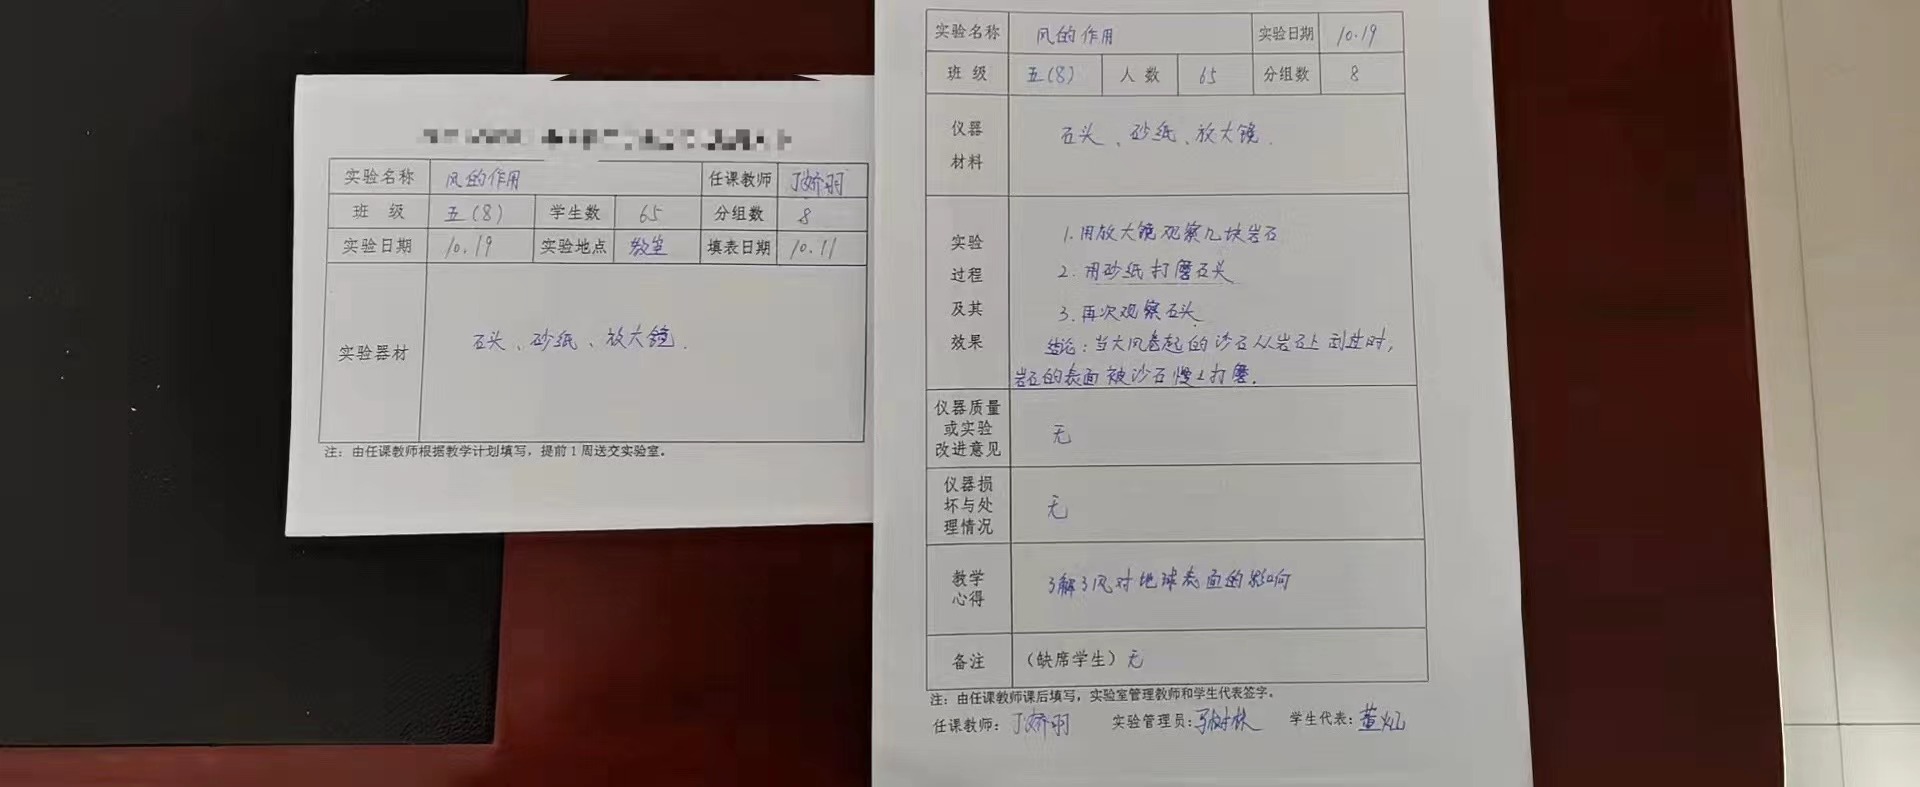 实验名称 风的作用 任课教师 丁娇羽
班 级 五(8) 学生数 65 分组数 8
实验日期 10.19 实验地点 教室 填表日期 10.11
实验器材 石头、砂纸、放大镜.
注: 由任课教师根据教学计划填写, 提前1周送交实验室。
实验名称 风的作用 实验日期 10.19
班 级 五(8) 人 数 65 分组数 8
仪器
材料
石头、砂纸、放大镜.
实验
过程
及其
效果
1.用放大镜观察几块岩石
2.用砂纸打磨石头
3.再次观察石头
结论:当大风卷起的沙石从岩石上刮过时,
岩石的表面被沙石慢慢打磨.
仪器质量
或实验
改进意见
无
仪器损
坏与处
理情况
无
教学
心得
了解了风对地球表面的影响
备注 (缺席学生) 无
注: 由任课教师课后填写, 实验室管理教师和学生代表签字。
任课教师: 丁娇羽 实验管理员: 学生代表: 董